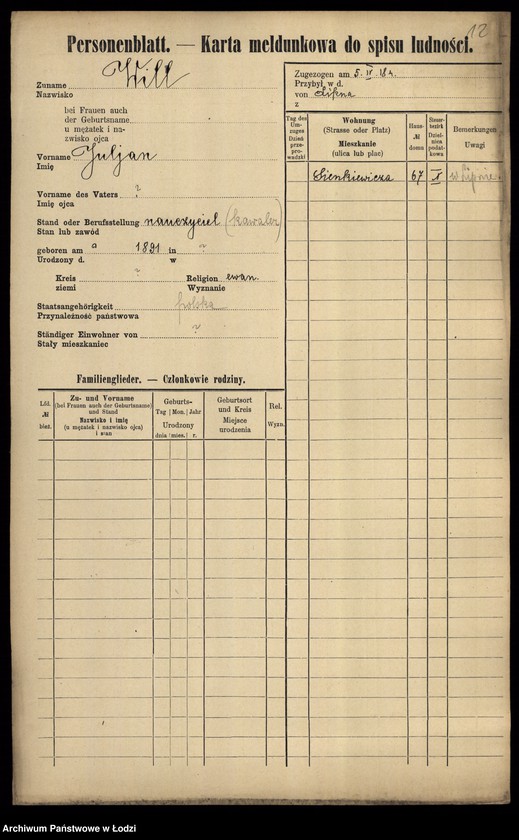 12
Personenblatt. — Karta meldunkowa do spisu ludności.
Zuname Will
Nazwisko
bei Frauen auch
der Geburtsname
u mężatek i na-
zwisko ojca
Vorname Juljan
Imię
Vorname des Vaters ?
Imię ojca
Stand oder Berufsstellung nauczyciel (kawaler)
Stan lub zawód
geboren am a 1891 in ?
Urodzony d. w
Kreis ? Religion ewan.
ziemi Wyznanie
Staatsangehörigkeit polska
Przynależność państwowa
Ständiger Einwohner von ?
Stały mieszkaniec
Zugezogen am 5. IV 18 r.
Przybył w d.
von
z
Tag des Um-zuges Dzień prze-prowadzki
Wohnung
(Strasse oder Platz)
Mieszkanie
(ulica lub plac)
Haus-
№
domu
Steuer-bezirk Dziel-nica podat-kowa
Bemerkungen
Uwagi
Sienkiewicza 67 X w
Familienglieder. — Członkowie rodziny.
Lfd.
№
bież.
Zu- und Vorname
(bei Frauen auch der Geburtsname)
und Stand
Nazwisko i imię
(u mężatek i nazwisko ojca)
i stan
Geburts-
Tag Mon. Jahr
Urodzony
dnia mies. r.
Geburtsort
und Kreis
Miejsce
urodzenia
Rel.
Wyzn.
Archiwum Państwowe w Łodzi